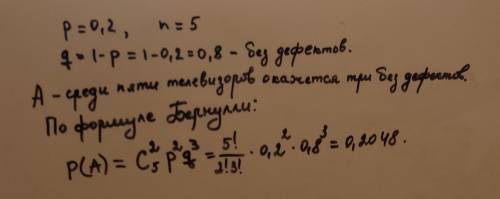 p=0,2, n=5
q=1-p=1-0,2=0,8 - без дефектов.
A - среди пяти телевизоров окажется три без дефектов.
По формуле Бернулли:
P(A) = C₅² p² q³ = 5!/2!3! · 0,2² · 0,8³ = 0,2048.